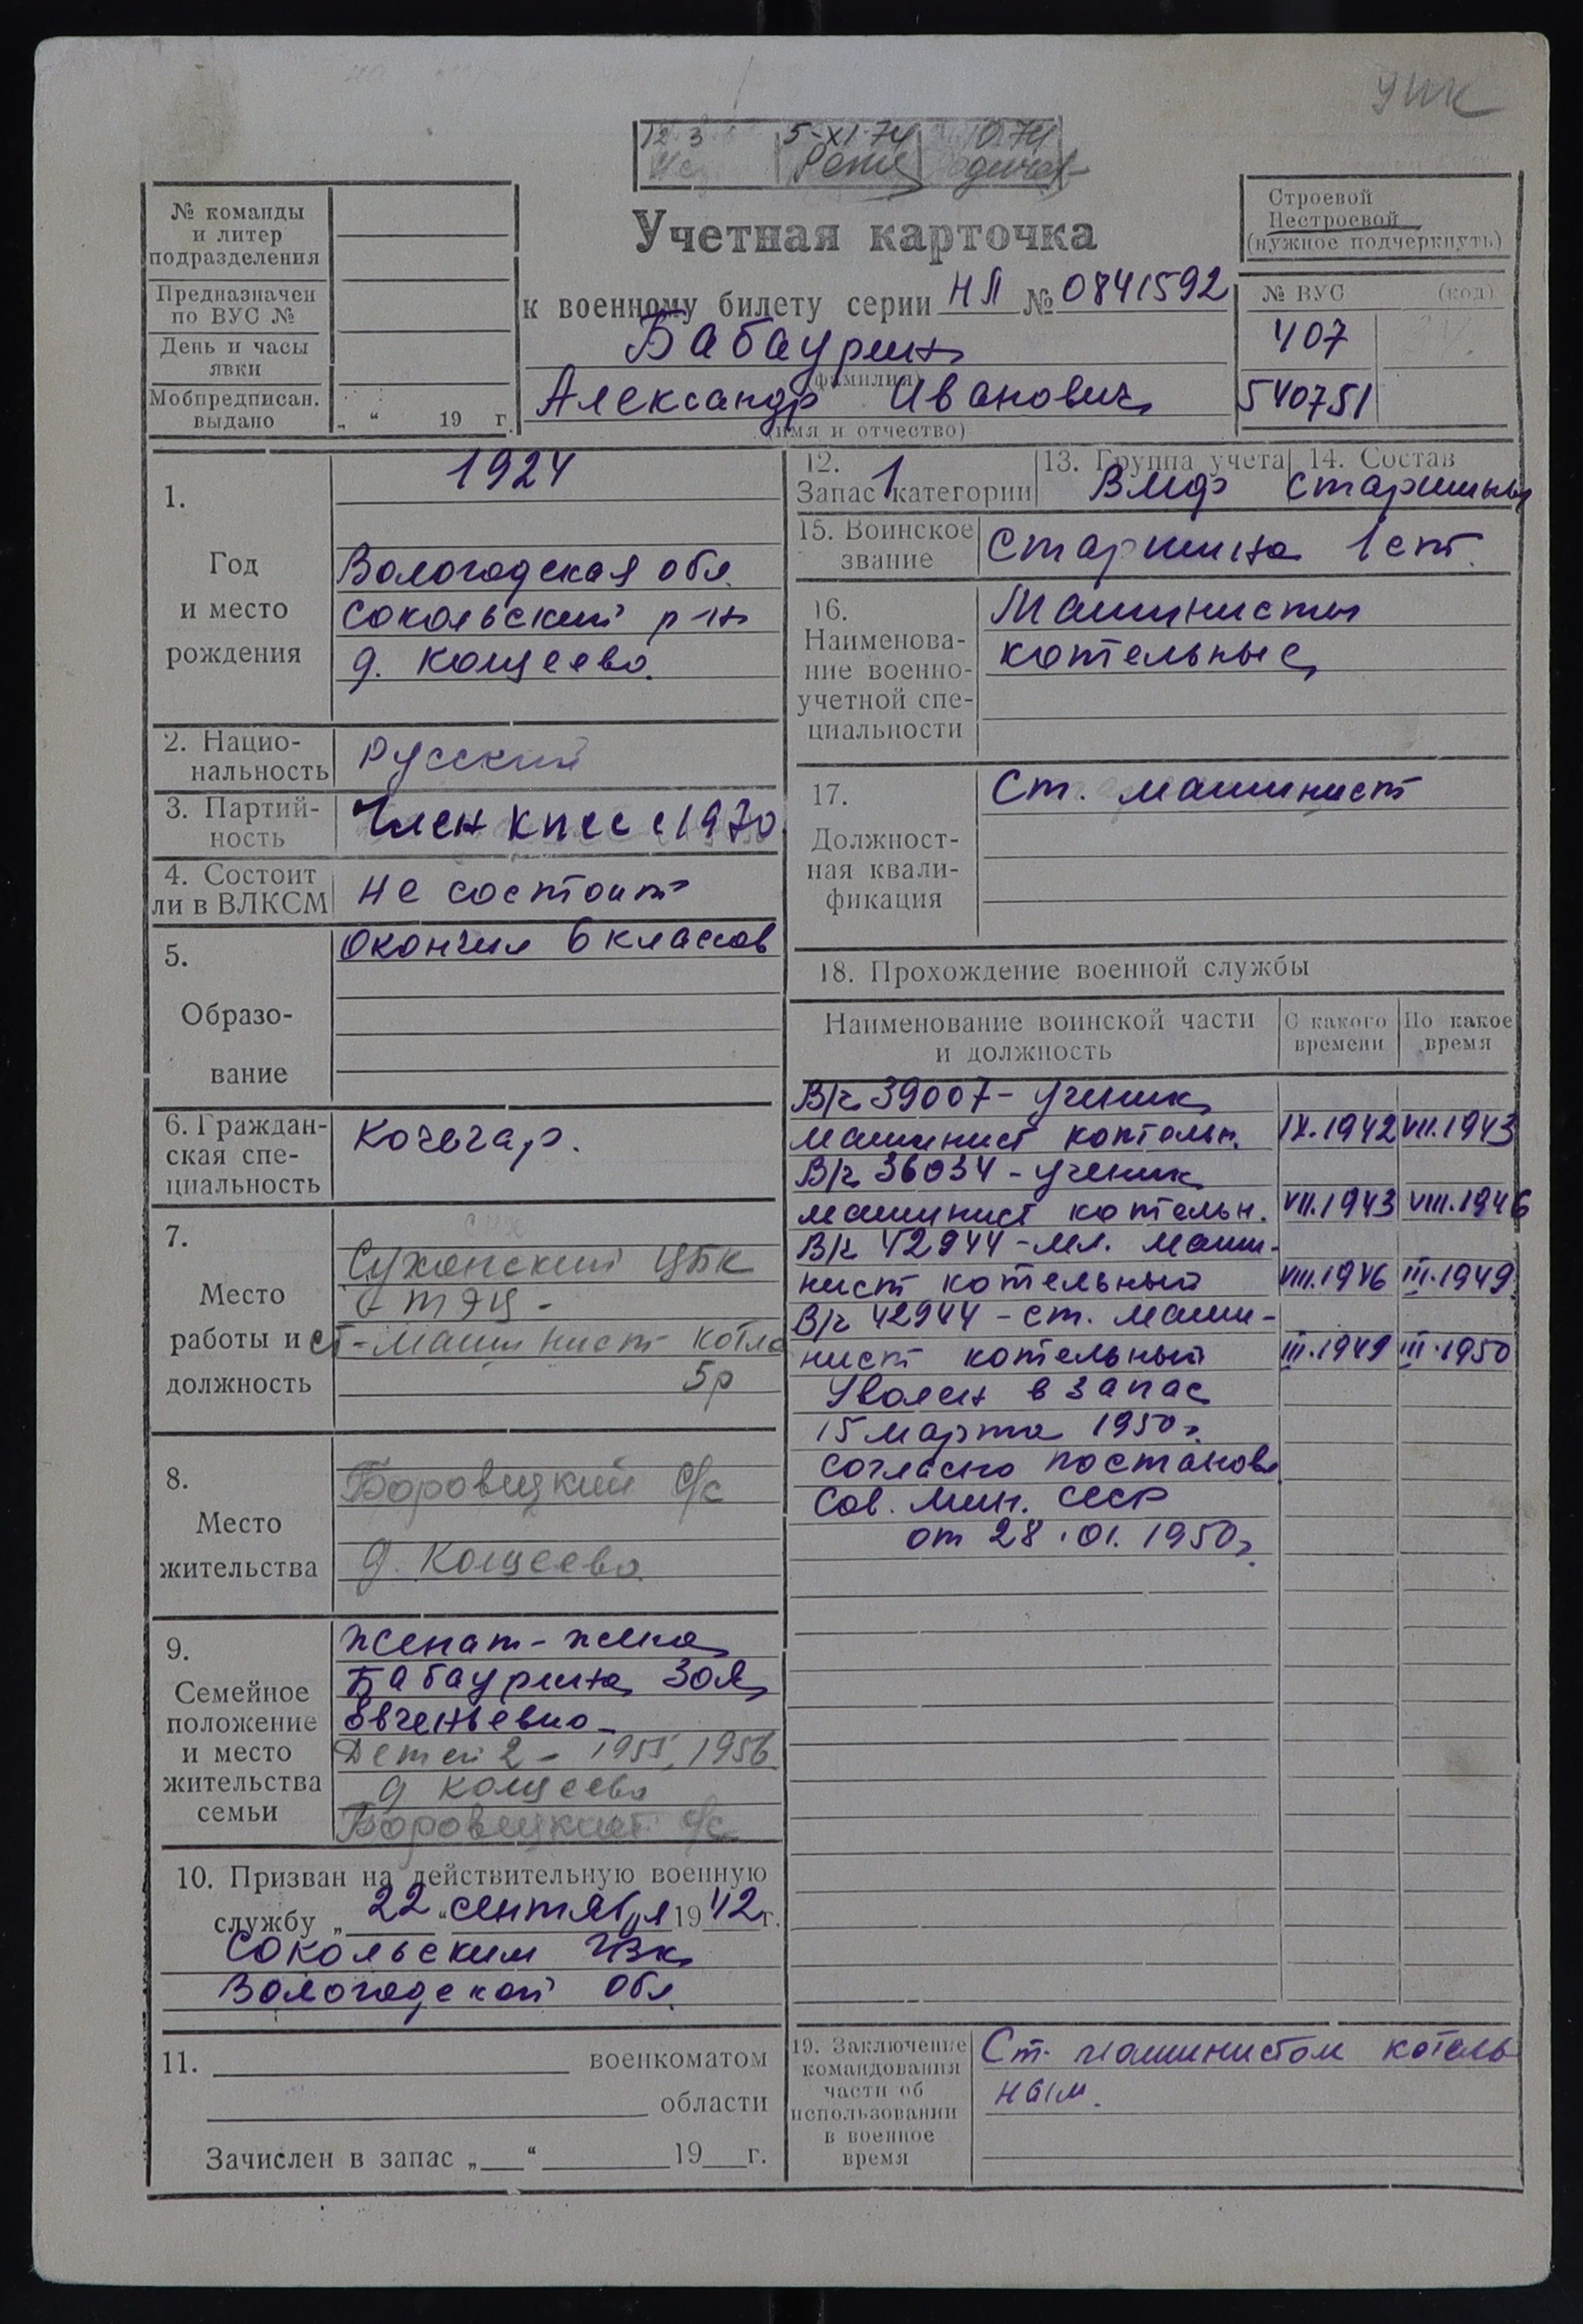 УПК
12 3 5-XI-74 10.74
Учетная карточка
к военному билету серии НЛ № 0841592
Бабаурин
(фамилия)
Александр Иванович
(имя и отчество)
№ команды
и литер
подразделения
Предназначен
по ВУС №
День и часы
явки
Мобпредписан.
выдано
„ “ 19 г.
Строевой
Нестроевой
(нужное подчеркнуть)
№ ВУС (код)
407
540751
1.
Год
и место
рождения
1924
Вологодская обл.
Сокольский р-н
д. Кощеево.
2. Нацио-
нальность
Русский
3. Партий-
ность
Член КПСС с 1970
4. Состоит
ли в ВЛКСМ
Не состоит
5.
Образо-
вание
Окончил 6 классов
6. Граждан-
ская спе-
циальность
Кочегар.
7.
Место
работы и
должность
Сухонский ЦБК
ТЭЦ -
ст-машинист котла
5р
8.
Место
жительства
Боровецкий с/с
д. Кощеево.
9.
Семейное
положение
и место
жительства
семьи
Женат - жена
Бабаурина Зоя
Евгеньевна
Детей 2 - 1955, 1956
д Кощеево
Боровецкий с/с
10. Призван на действительную военную
службу „22“ сентября 1942 г.
Сокольским РВК
Вологодской обл.
11. военкоматом
области
Зачислен в запас „ “ 19 г.
12.
Запас 1 категории
13. Группа учета
ВМФ
14. Состав
Старшины
15. Воинское
звание
Старшина 1 ст.
16.
Наименова-
ние военно-
учетной спе-
циальности
Машинисты
котельные
17.
Должност-
ная квали-
фикация
Ст. машинист
18. Прохождение военной службы
Наименование воинской части
и должность
С какого
времени
По какое
время
В/ч 39007 - ученик
машинист котельн. IX.1942 VII.1943
В/ч 36034 - ученик
машинист котельн. VII.1943 VIII.1946
В/ч 42944 - мл. маши-
нист котельный VIII.1946 III.1949
В/ч 42944 - ст. маши-
нист котельный III.1949 III.1950
Уволен в запас
15 марта 1950 г.
согласно постанов.
Сов. Мин. СССР
от 28.01.1950 г.
19. Заключение
командования
части об
использовании
в военное
время
Ст. машинистом котель
ным.